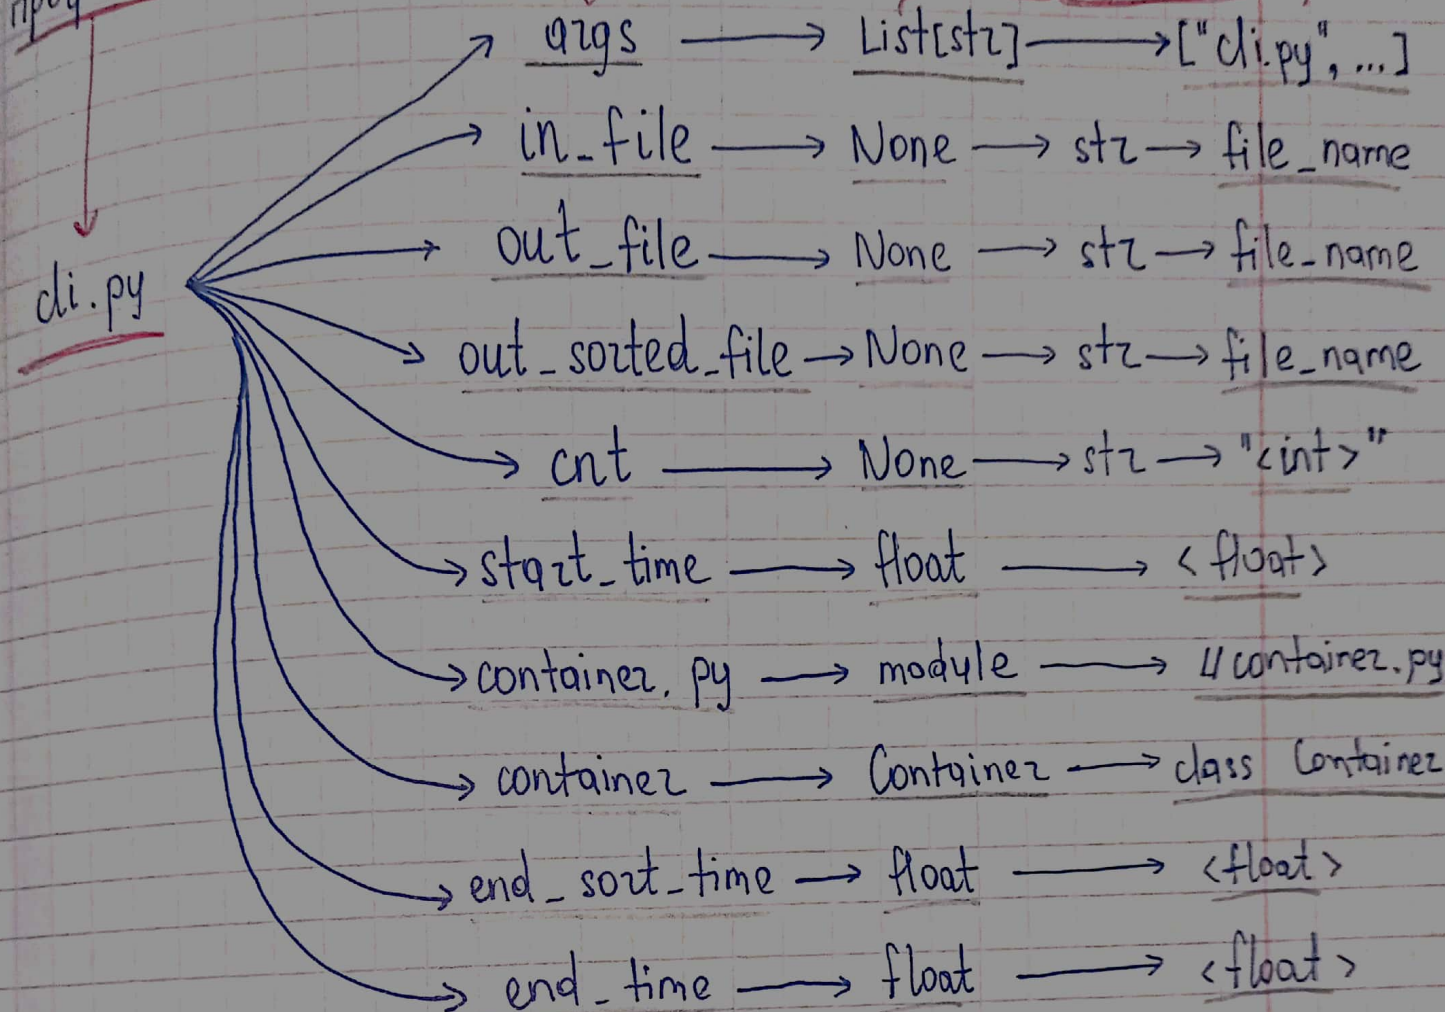 args → List[str] → ["cli.py", ...]
in_file → None → str → file_name
out_file → None → str → file_name
cli.py
out_sorted_file → None → str → file_name
cnt → None → str → "<int>"
start_time → float → <float>
container.py → module → //container.py
container → Container → class Container
end_sort_time → float → <float>
end_time → float → <float>